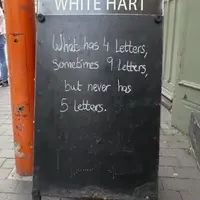 WHITE HART
What has 4 letters,
Sometimes 9 letters,
but never has
5 letters.